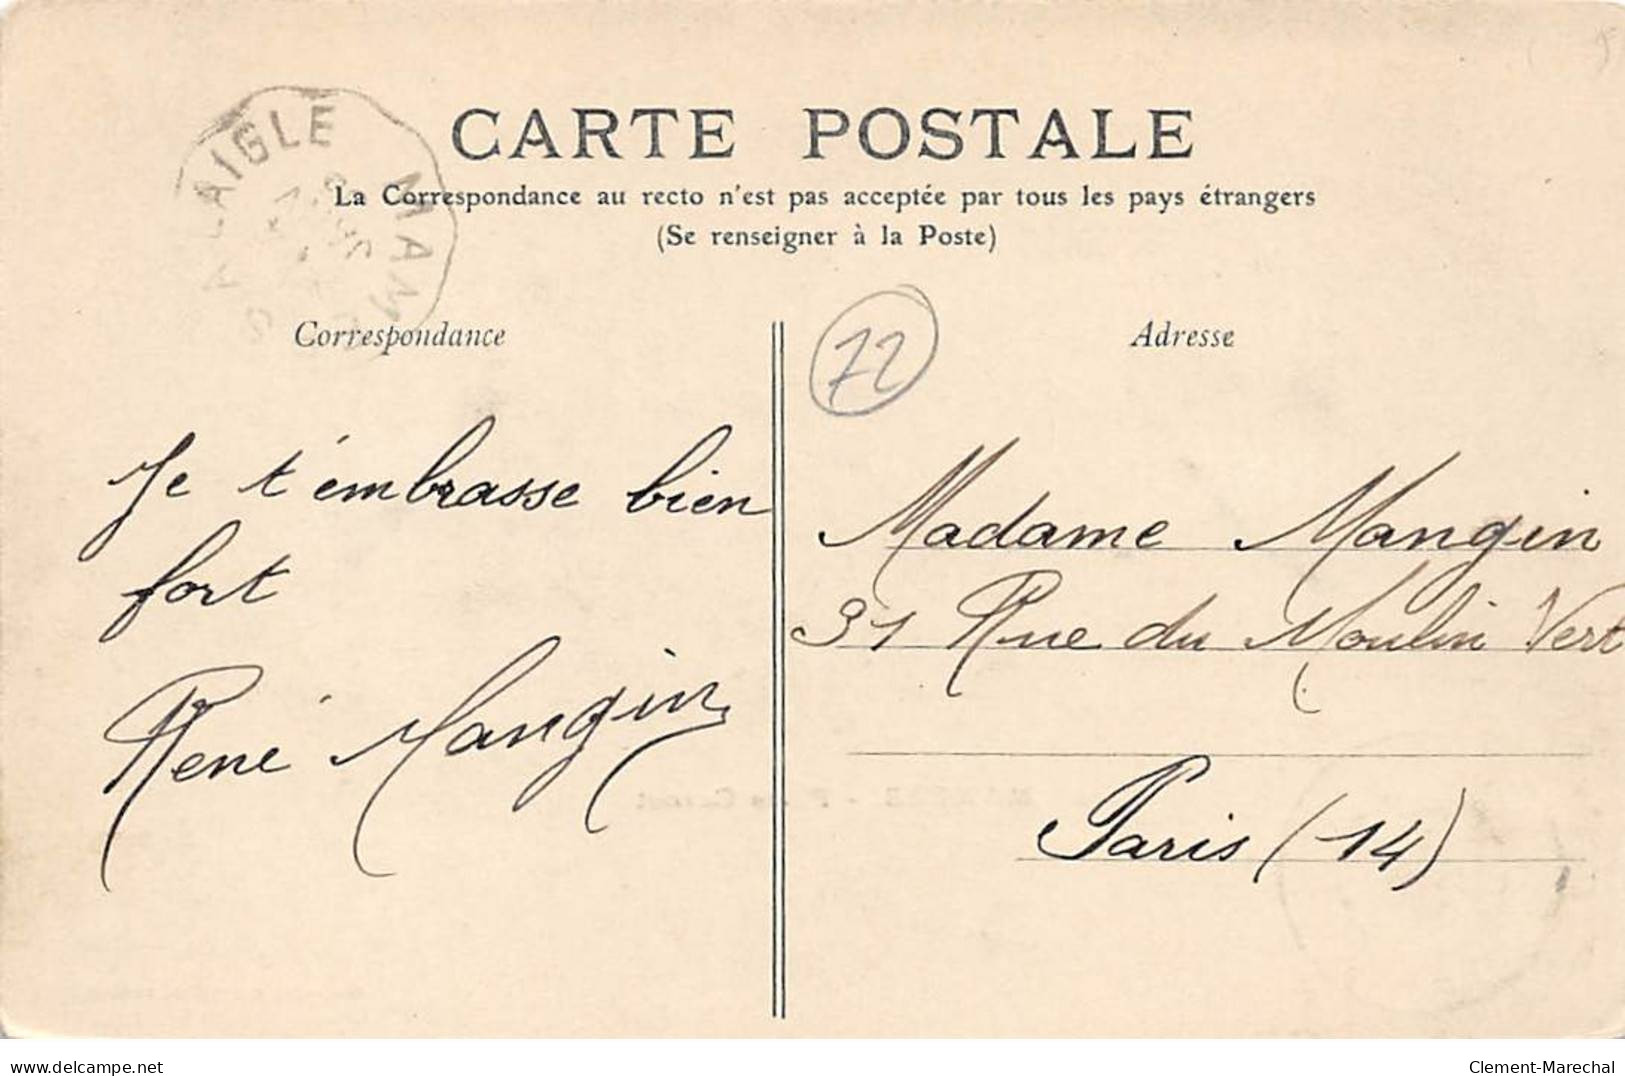 CARTE POSTALE
La Correspondance au recto n'est pas acceptée par tous les pays étrangers
(Se renseigner à la Poste)
L'AIGLE MAM
Correspondance
72
Adresse
Je t'embrasse bien
fort
René Mangin
Madame Mangin
31 Rue du Moulin Vert
Paris (14)
delcampe.net
Clement-Marechal